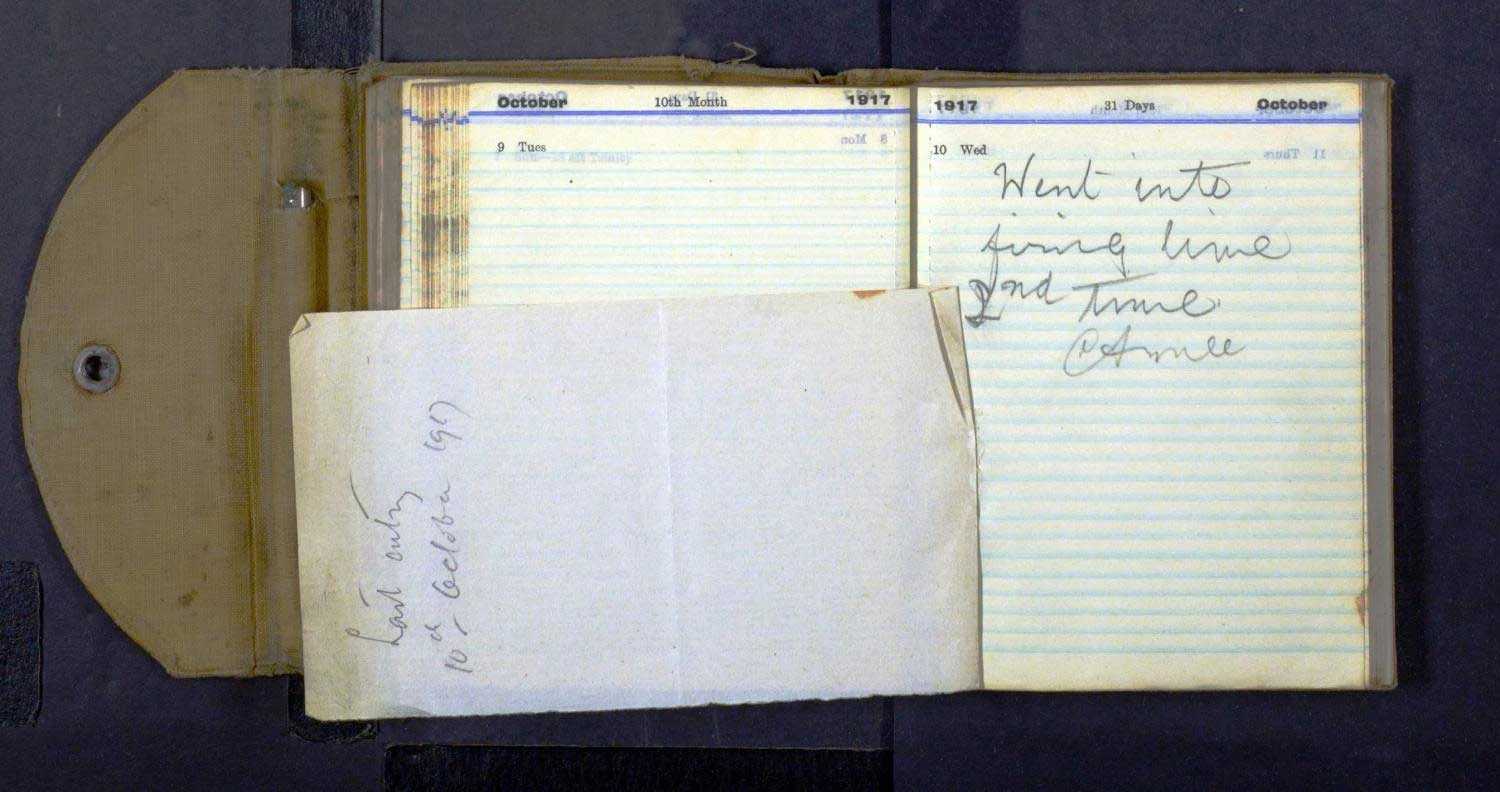 October 10th Month 1917
9 Tues
1917 31 Days October
10 Wed
Went into
firing line
2nd Time
Last entry
10th October 1917